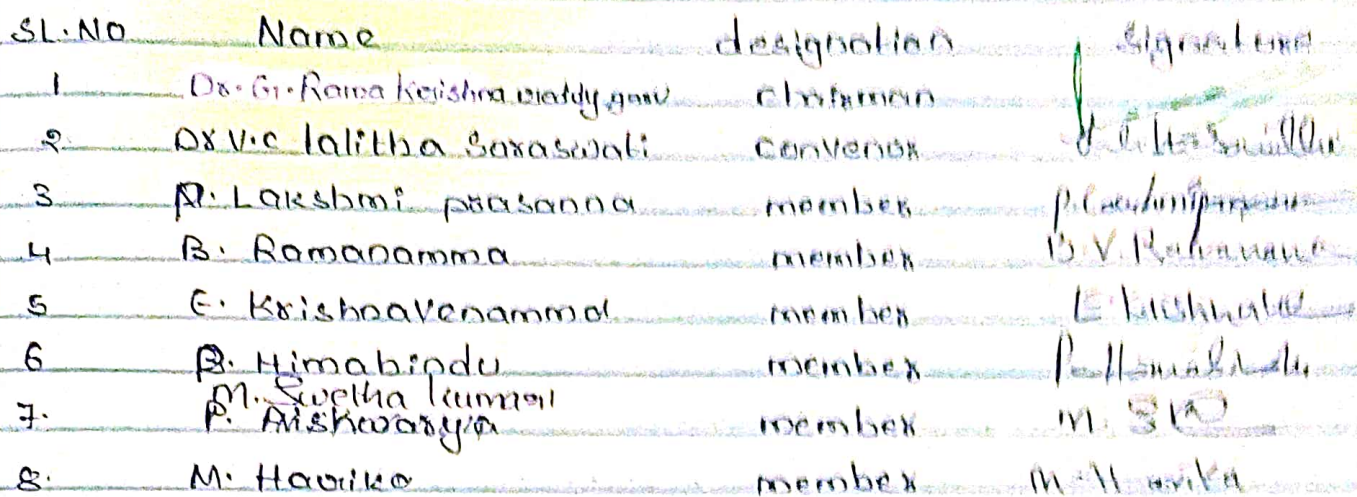 SL.NO Name designation Signature
1 Dr. G. Rama Krishna reddy garu chairman
2. Dr V.C lalitha Saraswati convenor
3 P. Lakshmi prasanna member
4 B. Ramanamma member B.V. Ramanamma
5 E. Krishnavenamma member
6 P. Himabindu member P. Himabindu
M. Swetha kumari
7. P. Aishwarya member M. SK
8. M. Harika member M. Harika